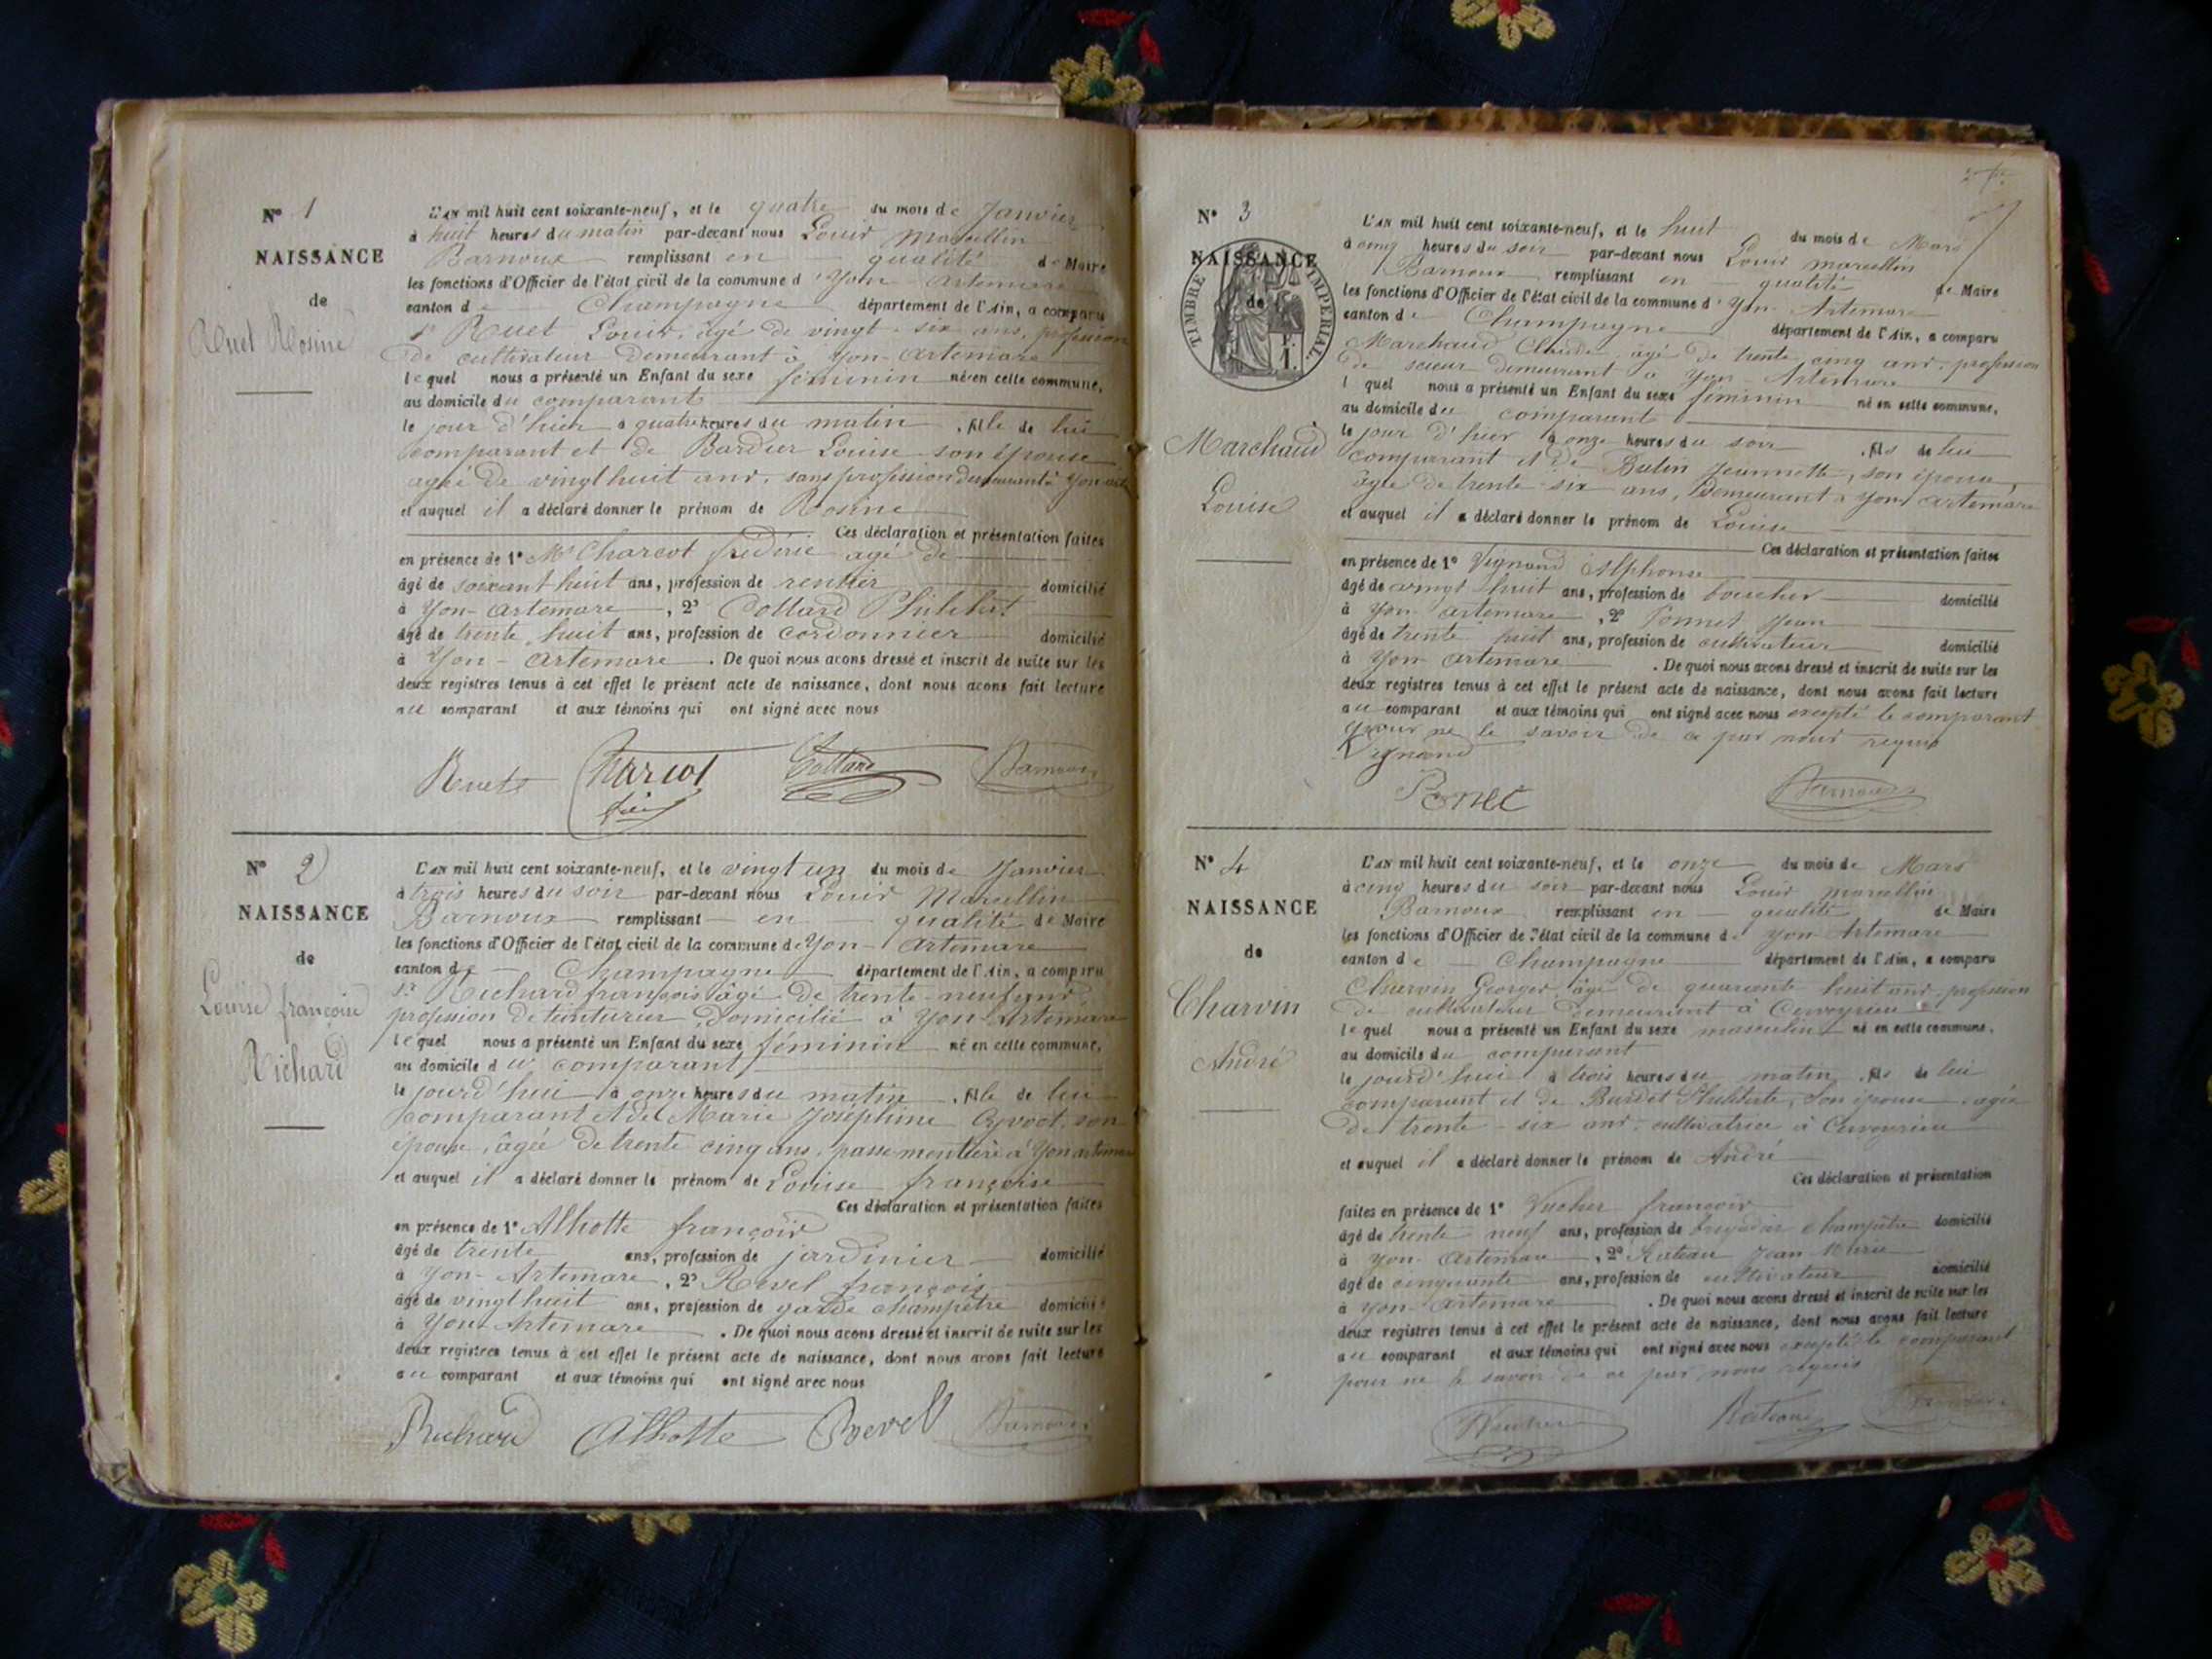 N° 1
NAISSANCE
de
Ruet Rosine
L'AN mil huit cent soixante-neuf, et le quatre du mois de Janvier
à huit heures du matin par-devant nous Louis Marcellin
Barnoux remplissant en qualité de Maire
les fonctions d'Officier de l'état civil de la commune d'Yon-Artemare
canton de Champagne département de l'Ain, a comparu
Sr Ruet Louis, âgé de vingt-six ans, profession
de cultivateur demeurant à Yon-Artemare
lequel nous a présenté un Enfant du sexe féminin né en cette commune,
au domicile du comparant
le jour d'hier à quatre heures du matin, fille de lui
comparant et de Bardier Louise son épouse
agée de vingt huit ans, sans profession demeurant à Yon
et auquel il a déclaré donner le prénom de Rosine
Ces déclaration et présentation faites
en présence de 1° Mr Charcot frédéric agé de
âgé de soixant huit ans, profession de rentier domicilié
à Yon-Artemare, 2° Collard Philibert
âgé de trente huit ans, profession de cordonnier domicilié
à Yon-Artemare. De quoi nous avons dressé et inscrit de suite sur les
deux registres tenus à cet effet le présent acte de naissance, dont nous avons fait lecture
au comparant et aux témoins qui ont signé avec nous
Ruet Charcot Collard Barnoux
N° 2
NAISSANCE
de
Louise françoise
Richard
L'AN mil huit cent soixante-neuf, et le vingt un du mois de Janvier
à trois heures du soir par-devant nous Louis Marcellin
Barnoux remplissant en qualité de Maire
les fonctions d'Officier de l'état civil de la commune de Yon-Artemare
canton de Champagne département de l'Ain, a comparu
Sr Richard françois âgé de trente-neuf ans
profession de teinturier, Domicilié à Yon-Artemare
lequel nous a présenté un Enfant du sexe féminin né en cette commune,
au domicile du comparant
le jourd'hui à onze heures du matin, fille de lui
comparant et de Marie Joséphine son
épouse, âgée de trente cinq ans, passementière à Yon artemare
et auquel il a déclaré donner le prénom de Louise françoise
Ces déclaration et présentation faites
en présence de 1° Alhotte françois
âgé de trente ans, profession de jardinier domicilié
à Yon-Artemare, 2° Revel françois
âgé de vingt huit ans, profession de garde champêtre domicilié
à Yon-Artemare. De quoi nous avons dressé et inscrit de suite sur les
deux registres tenus à cet effet le présent acte de naissance, dont nous avons fait lecture
au comparant et aux témoins qui ont signé avec nous
Richard Alhotte Revel Barnoux
N° 3
NAISSANCE
de
TIMBRE IMPERIAL
Marchand
Louise
L'AN mil huit cent soixante-neuf, et le huit du mois de Mars
à cinq heures du soir par-devant nous Louis Marcellin
Barnoux remplissant en qualité de Maire
les fonctions d'Officier de l'état civil de la commune d'Yon-Artemare
canton de Champagne département de l'Ain, a comparu
Marchand Claude, agé de trente cinq ans, profession
de scieur demeurant à Yon-Artemare
l quel nous a présenté un Enfant du sexe féminin né en cette commune,
au domicile du comparant
le jour d'hier à onze heures du soir, fils de lui
comparant et de Butin Jeannette, son épouse,
âgée de trente-six ans, demeurant à Yon artemare
et auquel il a déclaré donner le prénom de Louise
Ces déclaration et présentation faites
en présence de 1° Vignand Alphonse
âgé de vingt huit ans, profession de boucher domicilié
à Yon artemare, 2° Ponnet Jean
âgé de trente huit ans, profession de cultivateur domicilié
à Yon Artemare. De quoi nous avons dressé et inscrit de suite sur les
deux registres tenus à cet effet le présent acte de naissance, dont nous avons fait lecture
au comparant et aux témoins qui ont signé avec nous excepté le comparant
pour ne le savoir de ce par nous requis
Vignand
Ponet Barnoux
N° 4
NAISSANCE
de
Charvin
André
L'AN mil huit cent soixante-neuf, et le onze du mois de Mars
à cinq heures du soir par-devant nous Louis Marcellin
Barnoux remplissant en qualité de Maire
les fonctions d'Officier de l'état civil de la commune de Yon Artemare
canton de Champagne département de l'Ain, a comparu
Charvin Georges âgé de quarante huit ans, profession
de cultivateur demeurant à Cerveyrieu
lequel nous a présenté un Enfant du sexe masculin né en cette commune,
au domicile du comparant
le jourd'hui à trois heures du matin, fils de lui
comparant et de Burdet Philiberte, son épouse, agée
de trente-six ans, cultivatrice à Cerveyrieu
et auquel il a déclaré donner le prénom de André
Ces déclaration et présentation
faites en présence de 1° Vucher françois
âgé de trente neuf ans, profession de brigadier champêtre domicilié
à Yon Artemare, 2° Rateau Jean Marie
âgé de cinquante ans, profession de cultivateur domicilié
à Yon-Artemare. De quoi nous avons dressé et inscrit de suite sur les
deux registres tenus à cet effet le présent acte de naissance, dont nous avons fait lecture
au comparant et aux témoins qui ont signé avec nous excepté le comparant
pour ne le savoir de ce par nous requis
Vucher Rateau Barnoux